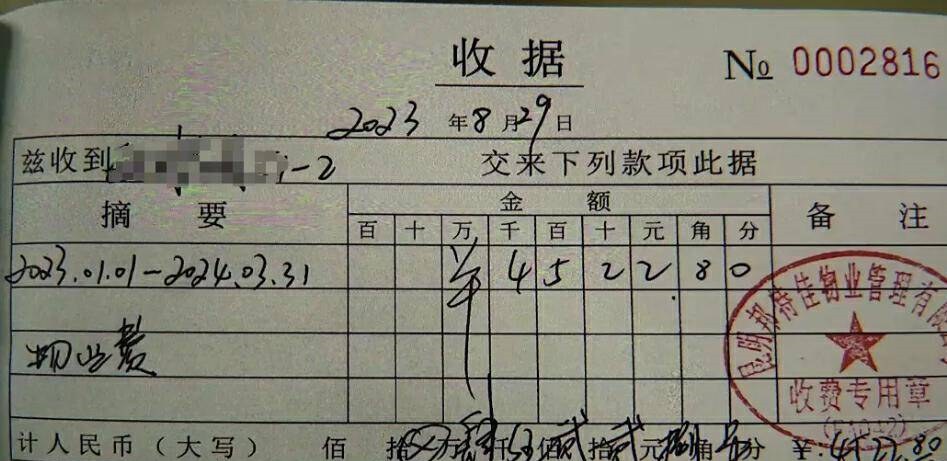 收据
№ 0002816
2023年8月29日
兹收到 -2 交来下列款项此据
摘要 金额 备注
百 十 万 千 百 十 元 角 分
2023.01.01-2024.03.31 ¥ 4 5 2 2 8 0
物业费
昆明邦特佳物业管理有限
收费专用章
计人民币(大写) 佰 拾 万 肆 仟 伍 佰 贰 拾 贰 元 捌 角 分 ¥:4522.80